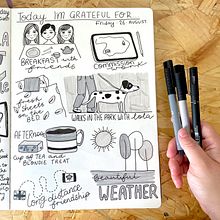 Today I'M GRATEFUL FOR...
Friday 26 AUGUST
BREAKFAST with friends
Commission
fresh sheets on the BED
WALKS IN THE PARK with Lola
AFTERNOON
cup of TEA and BLONDIE TREAT
beautiful
WEATHER
Long distance
friendship